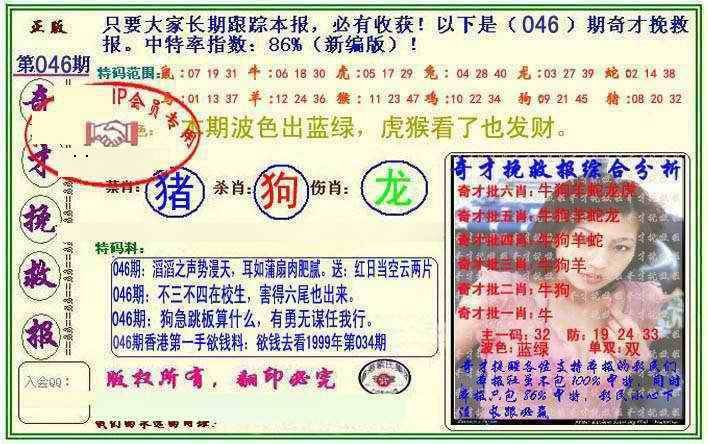 正版
只要大家长期跟踪本报，必有收获！以下是（046）期奇才挽救
报。中特率指数：86%（新编版）！
第046期
特码范围：鼠：07 19 31 牛：06 18 30 虎：05 17 29 兔：04 28 40 龙：03 27 39 蛇：02 14 38
01 13 37 羊：12 24 36 猴：11 23 47 鸡：10 22 34 狗：09 21 45 猪：08 20 32
IP会员专用
本期波色出蓝绿，虎猴看了也发财。
奇才挽救报
禁肖：猪 杀肖：狗 伤肖：龙
特码料：
046期：滔滔之声势漫天，耳如蒲扇肉肥腻。送：红日当空云两片
046期：不三不四在校生，害得六尾也出来。
046期：狗急跳板算什么，有勇无谋任我行。
046期香港第一手欲钱料：欲钱去看1999年第034期
版权所有，翻印必究
入会QQ：
奇才挽救报综合分析
奇才批六肖：牛狗羊蛇龙虎
奇才批五肖：牛狗羊蛇龙
奇才批四肖：牛狗羊蛇
奇才批三肖：牛狗羊
奇才批二肖：牛狗
奇才批一肖：牛
主一码：32 防：19 24 33
波色：蓝绿 单双：双
奇才提醒各位支持本报的彩民们
本报社虽不包100%中特，同时
本报只包86%中特，彩民小心下
注，长跟必赢